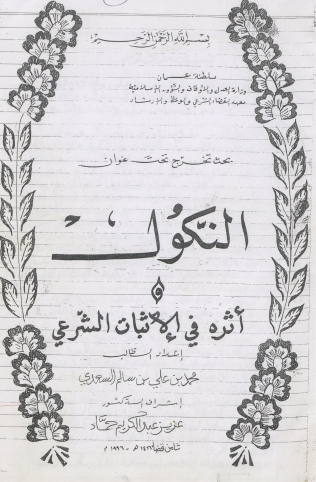 بسم الله الرحمن الرحيم
سلطنة عمان
وزارة العدل والأوقاف والشؤون الإسلامية
معهد القضاء الشرعي والوعظ والإرشاد
بحث تخرج تحت عنوان
النكول
و
أثره في الإثبات الشرعي
إعداد الطالب
محمد بن علي بن سالم السعدي
إشراف الدكتور
عزيز عبد الكريم حمّاد
١٤١٦ هـ - ١٩٩٦ م